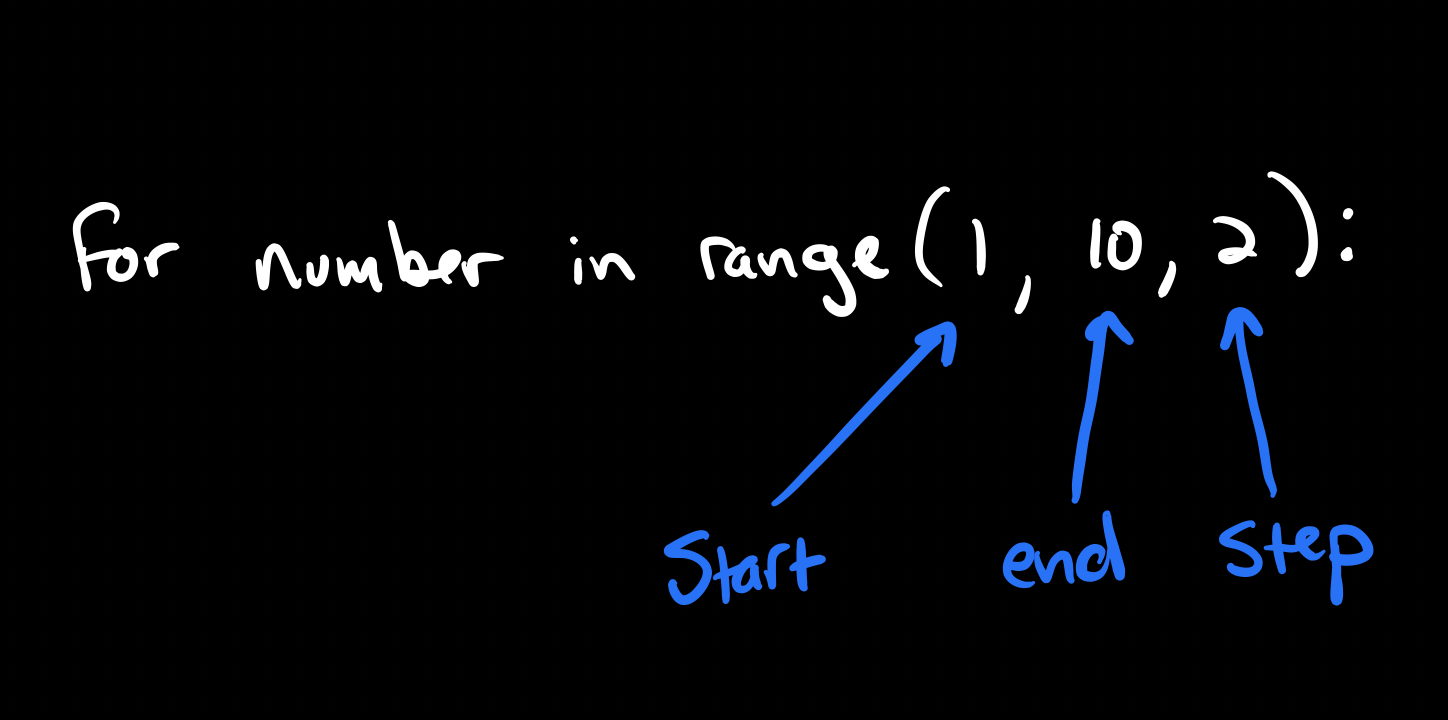 for number in range(1, 10, 2):
Start end Step